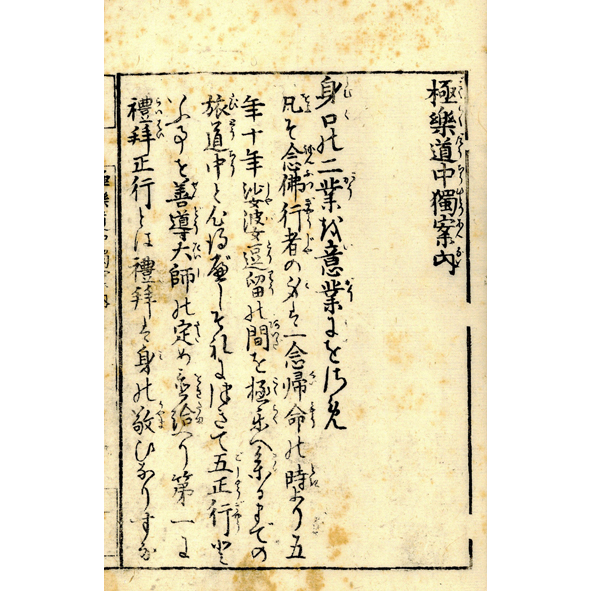 極樂道中獨案内
身口の二業を意業にをさめ
凡そ念佛行者の身は一念帰命の時より五
年十年娑婆逗留の間を極楽へ参るまでの
旅道中と心得べしそれに付て五正行と
いふ事を善導大師の定め玉へり第一に
禮拜正行とは禮拜は身の敬ひなりすな